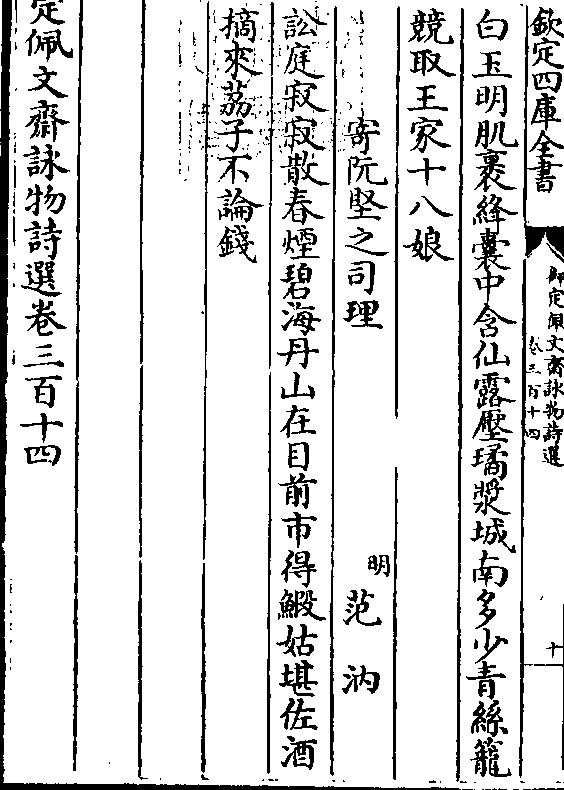 欽定四庫全書
御定佩文齋詠物詩選
卷三百十四
十
白玉明肌裹絳囊中含仙露壓璚漿城南多少青絲籠
競取王家十八娘
寄阮堅之司理
明
范汭
訟庭寂寂散春煙碧海丹山在目前市得鰕姑堪佐酒
摘來荔子不論錢
定佩文齋詠物詩選卷三百十四